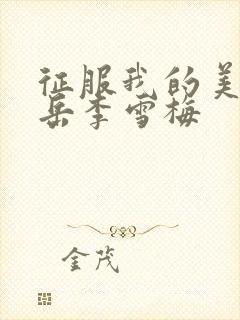 征服我的美
岳李雪梅
金茂